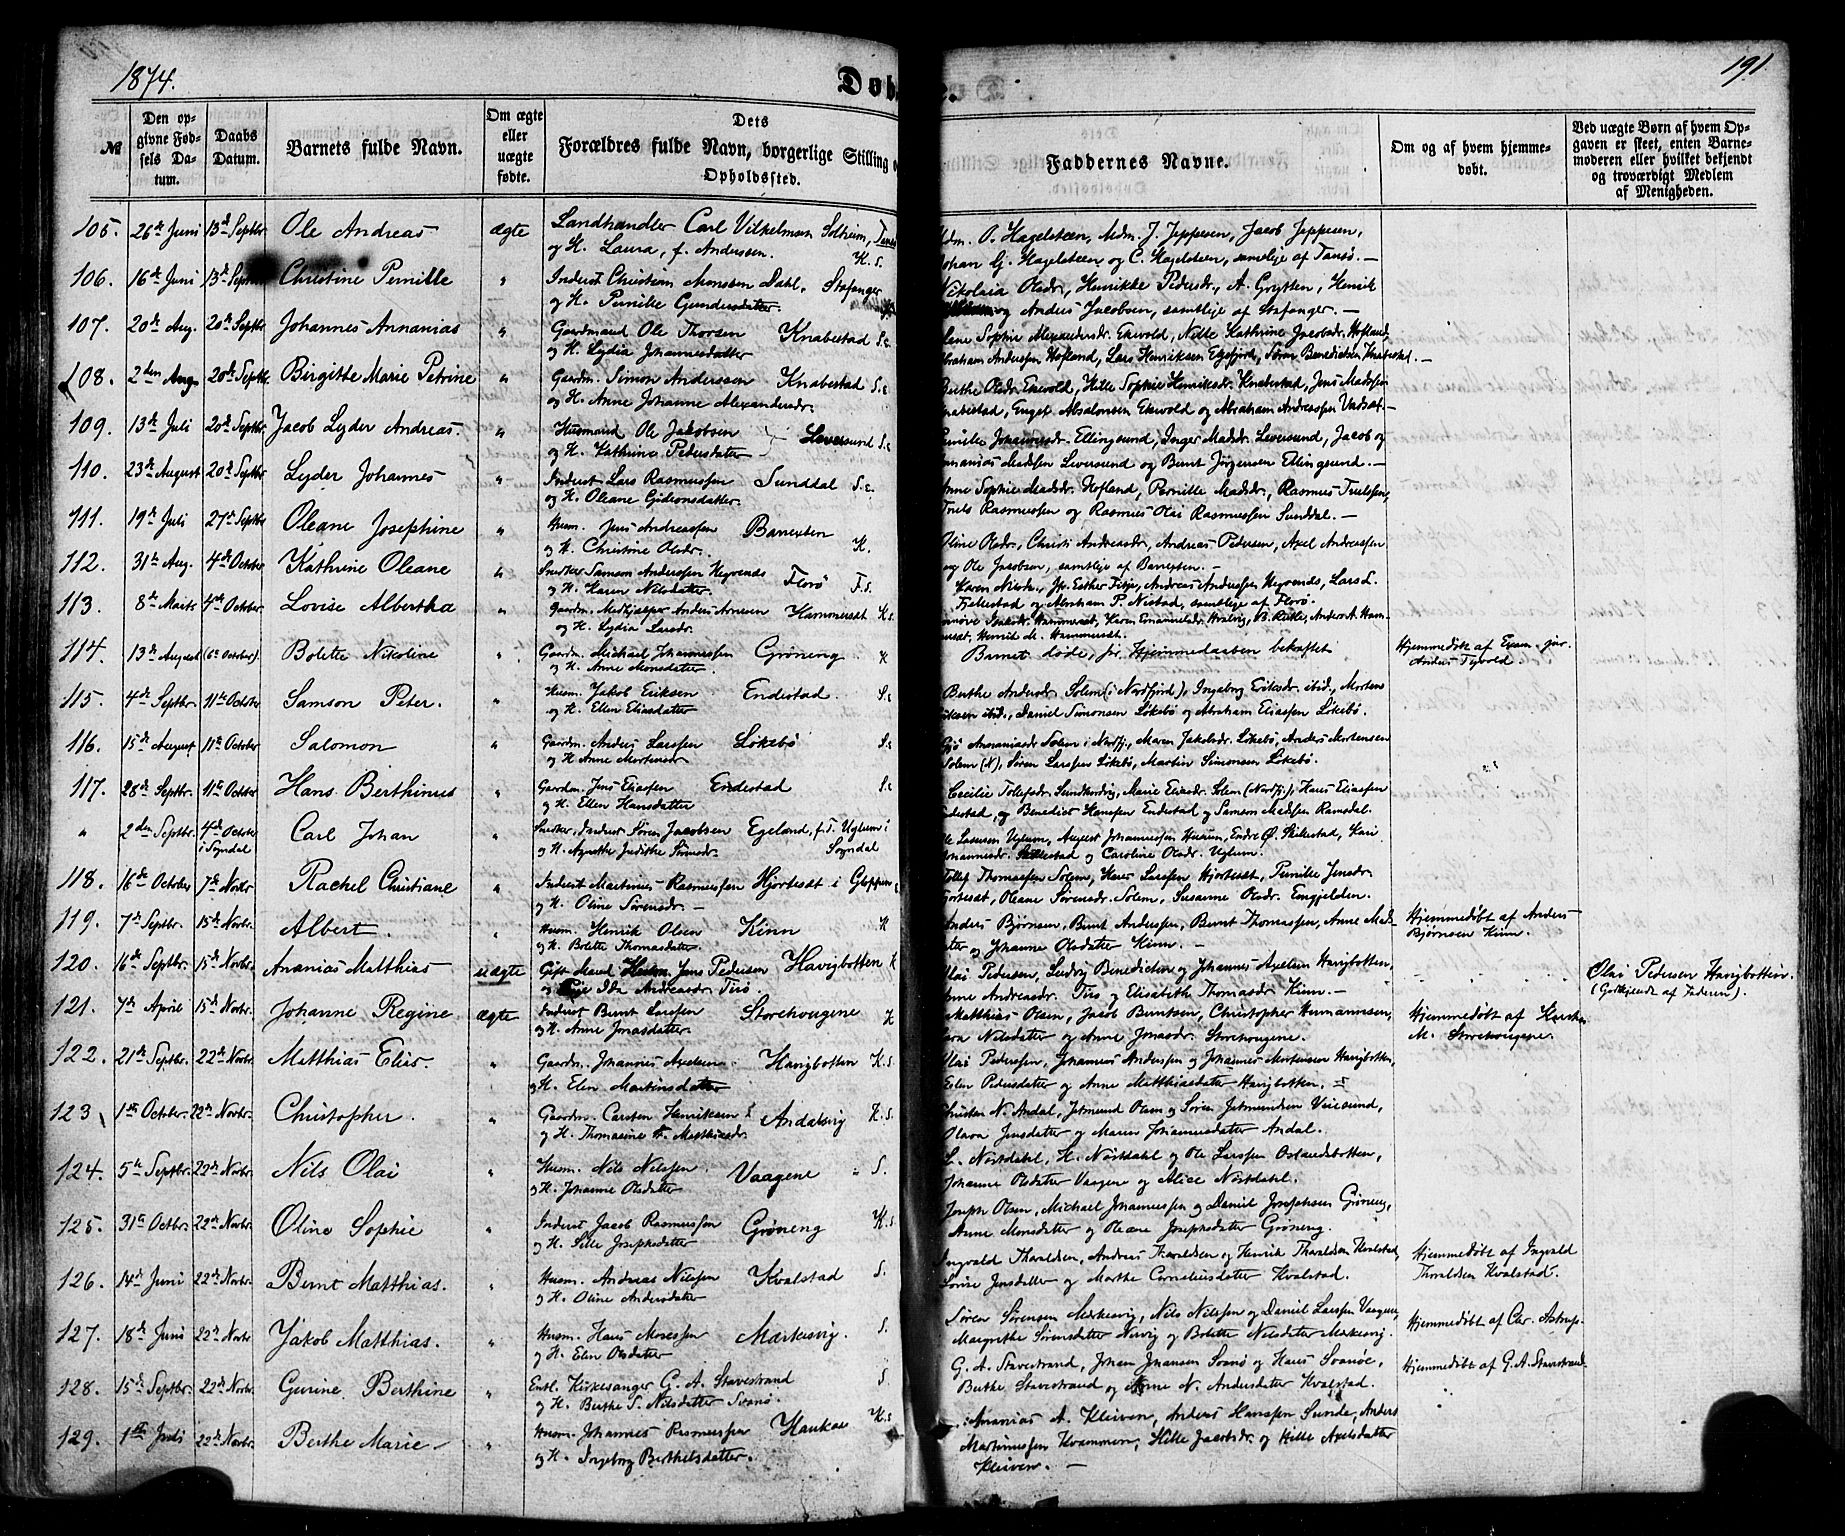 1874.
Døbte.
191
№
Den opgivne Fødsels Datum.
Daabs Datum.
Barnets fulde Navn.
Om ægte eller uægte fødte.
Dets Forældres fulde Navn, borgerlige Stilling og Opholdssted.
Faddernes Navne.
Om og af hvem hjemmedøbt.
Ved uægte Børn af hvem Opgaven er skeet, enten Barnemoderen eller hvilket bekjendt og troværdigt Medlem af Menigheden.
105. 26de Juni 13de Septbr Ole Andreas ægte Landhandler Carl Vilhelmsen Solheim,
og H. Laura, f. Andersen. K. S.
O. Hagelsteen, Mdm. J. Jeppesen, Jacob Jeppesen,
Johan G. Hagelsteen og C. Hagelsteen, samtlige af Tansø. —
106. 16de Juni 13de Septbr Christine Pernille " Inderst Christian Monssen Dahl, Stafanger
og H. Pernille Gundersdatter
Nikolaia Olsdr., Henrikke Pedersdr., A. Grytten, Henrik
og Anders Jacobsen, samtlige af Stafanger. —
107. 20de Aug. 20de Septbr Johannes Annanias " Gaardmand Ole Thorsen Knabestad S.
og H. Lydia Johannesdatter
Sophie Alexandersdr. Ekevold, Nille Kathrine Jacobsdr. Hofland,
Abraham Anderssen Hofland, Lars Henriksen
108. 2den Aug. 20de Septbr. Birgitte Marie Petrine " Gaardm. Simon Anderssen Knabestad
og H. Anne Johanne Alexandersdr.
Berthe Olsdr. Ekevold, Hille Sophie Henriksdr. Knabestad, Jens Madssen
Knabestad, Engel Absalonsen Ekevold og Abraham Andreassen Vadset. —
109. 13de Juli 20de Septbr. Jacob Lyder Andreas. " Husmand Ole Jakobsen Leversund
og H. Kathrine Pedersdatter
Pernille Johannesdr. Ellingsund, Inger Madsdr. Leversund, Jacob og
Ananias Madssen Leversund og Bernt Jørgensen Ellingsund. —
110. 23de August 20de Septbr Lyder Johannes " Inderst Lars Rasmussen Sunddal
og H. Oleane Gideonsdatter.
Anne Sophie Madsdr. Hofland, Pernille Madsdr., Rasmus Truelssen,
Truels Rasmussen og Rasmus Olai Rasmussen Sunddal. —
111. 19de Juli 27de Septbr Oleane Josephine " Husm. Jens Andreassen Barexten K.
og H. Christine Olsdr.
Oline Olsdr., Christi Andreasdr., Andreas Pedersen, Axel Andreassen
og Ole Jacobsen, samtlige af Barexten. —
112. 31te Aug. 4de October Kathrine Oleane " Snekker Samson Anderssen Florø F. S.
og H. Karen Nilsdatter
Karen Nilsdr.
og Abraham P. Nistad, samtlige af Florø.
113. 8de Marts 4de October. Lovise Albertha " Gaardm. Anders Arnesen Hammerset K. S.
og H. Lydia Larsdr.
114. 13de August (6te October). Bolette Nikoline " Gaardm. Michael Johannessen Grøneng. K
og H. Anne Monsdatter
Barnet døde, før Hjemmedaaben bekræftet
Hjemmedøbt af
115. 4de Septbr. 11te October Samson Peter. " Husm. Jakob Eriksen Endestad.
og H. Ellen Eliasdatter
Berthe Andersdr. Solem (i Nordfjord), Ingeborg Eriksdr. ibid., Morten
Eriksen ibid., Daniel Simonsen Løkebø og Abraham Eliassen Løkebø.
116. 15de August 11te October Salomon " Gaardm. Anders Larssen Løkebø
og H. Anne Mortensdr
Solem i Nordfj., Maren Jakobsdr. Løkebø, Anders Mortensen
Solem (N), Søren Larssen Løkebø, Martin Simonsen Løkebø.
117. 28de Septbr. 11te October Hans Berthinus " Gaardm. Jens Eliassen Endestad
og H. Ellen Hansdatter
Cecilie Tollefsdr. Marie Eliasdr. Solem (Nordfj.), Hans Eliassen
Endestad, og Benedict Hanssen Endestad og Samson Madssen Ramsdal.
" 2den Septbr. 4de October i Sogndal Carl Johan " Snekker, Inderst Søren Jacobsen Egeland, f. T. Uglum i Sogndal
og H. Agnethe Judithe
118. 16de October 7de Novbr Rachel Christiane " Inderst Martinus Rasmussen Hjorteset i Gloppen
og H. Oline Sørensdr. —
Tollef Thomassen Solem, Hans Larssen Hjorteset, Pernille Jensdr.
Hjorteset, Oleane Sørensdr. Solem, Susanne Olsdr.
119. 7de Septbr. 15de Novbr. Albert. " Husm. Henrik Olsen Kinn K
og H. Bolette Thomasdatter.
Anders Bjørnsen, Bernt Anderssen, Bernt Thomassen, Anne Mads-
datter og Johanne Olsdatter Kinn. —
Hjemmedøbt af Anders
Bjørnsen Kinn.
120. 16de Septbr. 15de Novbr. Ananias Matthias uægte Gift Mand Jens Pedersen Havigbotten K
og Pige Ida Andreasdr. Tirø.
Olai Pedersen, Ludvig Benedictsen og Johannes Axelsen Havigbotten,
Anne Andreasdr. Tirø og Elisabeth Thomasdr. Kinn. —
Olai Pedersen Havigbotten.
(Godkjendt af Faderen).
121. 7de April 15de Novbr. Johanne Regine ægte Inderst Bernt Larssen Storehougene K
og H. Anne Jonasdatter.
Matthias Olsen, Jacob Berntsen, Christopher Hermannsen,
Nilsdatter og Anne Jonasdr. Storehougene.
Hjemmedøbt af
M. Storehougene.
122. 21de Septbr. 22de Novbr. Matthias Elias. " Gaardm. Johannes Axelsen. Havigbotten K. S
og H. Elen Martinsdatter
Olai Pederssen, Johannes Anderssen og Johannes Mortensen Havigbotten,
Elen Pedersdatter og Anne Matthiasdatter Havigbotten. —
123. 1ste October. 22de Novbr. Christopher. " Gaardm. Carsten Henriksen Andalsvig K. S.
og H. Thomasine Matthiasdr.
Christen N. Andal, Jetmund Olsen og Søren Jetmundsen Veiesund,
Olava Jensdatter og Maren Johannesdatter Andal.
124. 5te Septbr. 22de Novbr. Nils Olai " Husm. Nils Nilssen. Vaagene S.
og H. Johanne Olsdatter
L. Nostdahl, H. Nostdahl og Ole Larssen Oslandsbotten,
Johanne Olsdatter Vaagene og Alice Nostdahl.
125. 31te Octbr. 22de Novbr. Oline Sophie " Inderst Jacob Rasmussen Grøneng K. S
og H. Sille Josephsdatter
Joseph Olsen, Michael Johannessen og Daniel Josephsen Grøneng,
Anne Monsdatter og Oleane Josephsdatter Grøneng.
126. 14de Juni 22de Novbr. Bernt Matthias. " Husm. Andreas Nilssen Kvalstad S.
og H. Oline Andersdatter
Ingvald Tharaldsen, Andreas Tharaldsen og Henrik Tharaldsen Kvalstad,
Lovise Jensdatter og Marthe Corneliusdatter Kvalstad.
Hjemmedøbt af Ingvald
Tharaldsen Kvalstad.
127. 18de Juni 22de Novbr. Jakob Matthias. " Husm. Hans Monssen Markesvig. S.
og H. Elen Olsdatter
Søren Sørensen Merkesvig, Nils Nilssen og Daniel Larssen Vaagene,
Margrethe Sørensdatter Norvig og Bolette Nilsdatter Merkesvig.
Hjemmedøbt af Chr. Astrup.
128. 15de Septbr. 22de Novbr. Gurine Berthine " Entl. Kirkesanger G. A. Stavestrand S.
og H. Berthe S. Nilsdatter Svanø.
G. A. Stavestrand, Johan Johansen Svanø og Hans Svanøe,
Berthe Stavestrand og Anne N. Andersdatter Kvalstad.
Hjemmedøbt af G. A. Stavestrand.
129. 1ste Juli 22de Novbr. Berthe Marie " Husm. Johannes Rasmussen Haukaa K. S
og H. Ingeborg Berthelsdatter.
Ananias A. Kleiven, Anders Hanssen Sunde, Anders
Martinussen Kvammen, Hille Jacobsdr. og Hille Axelsdatter
Kleiven. —